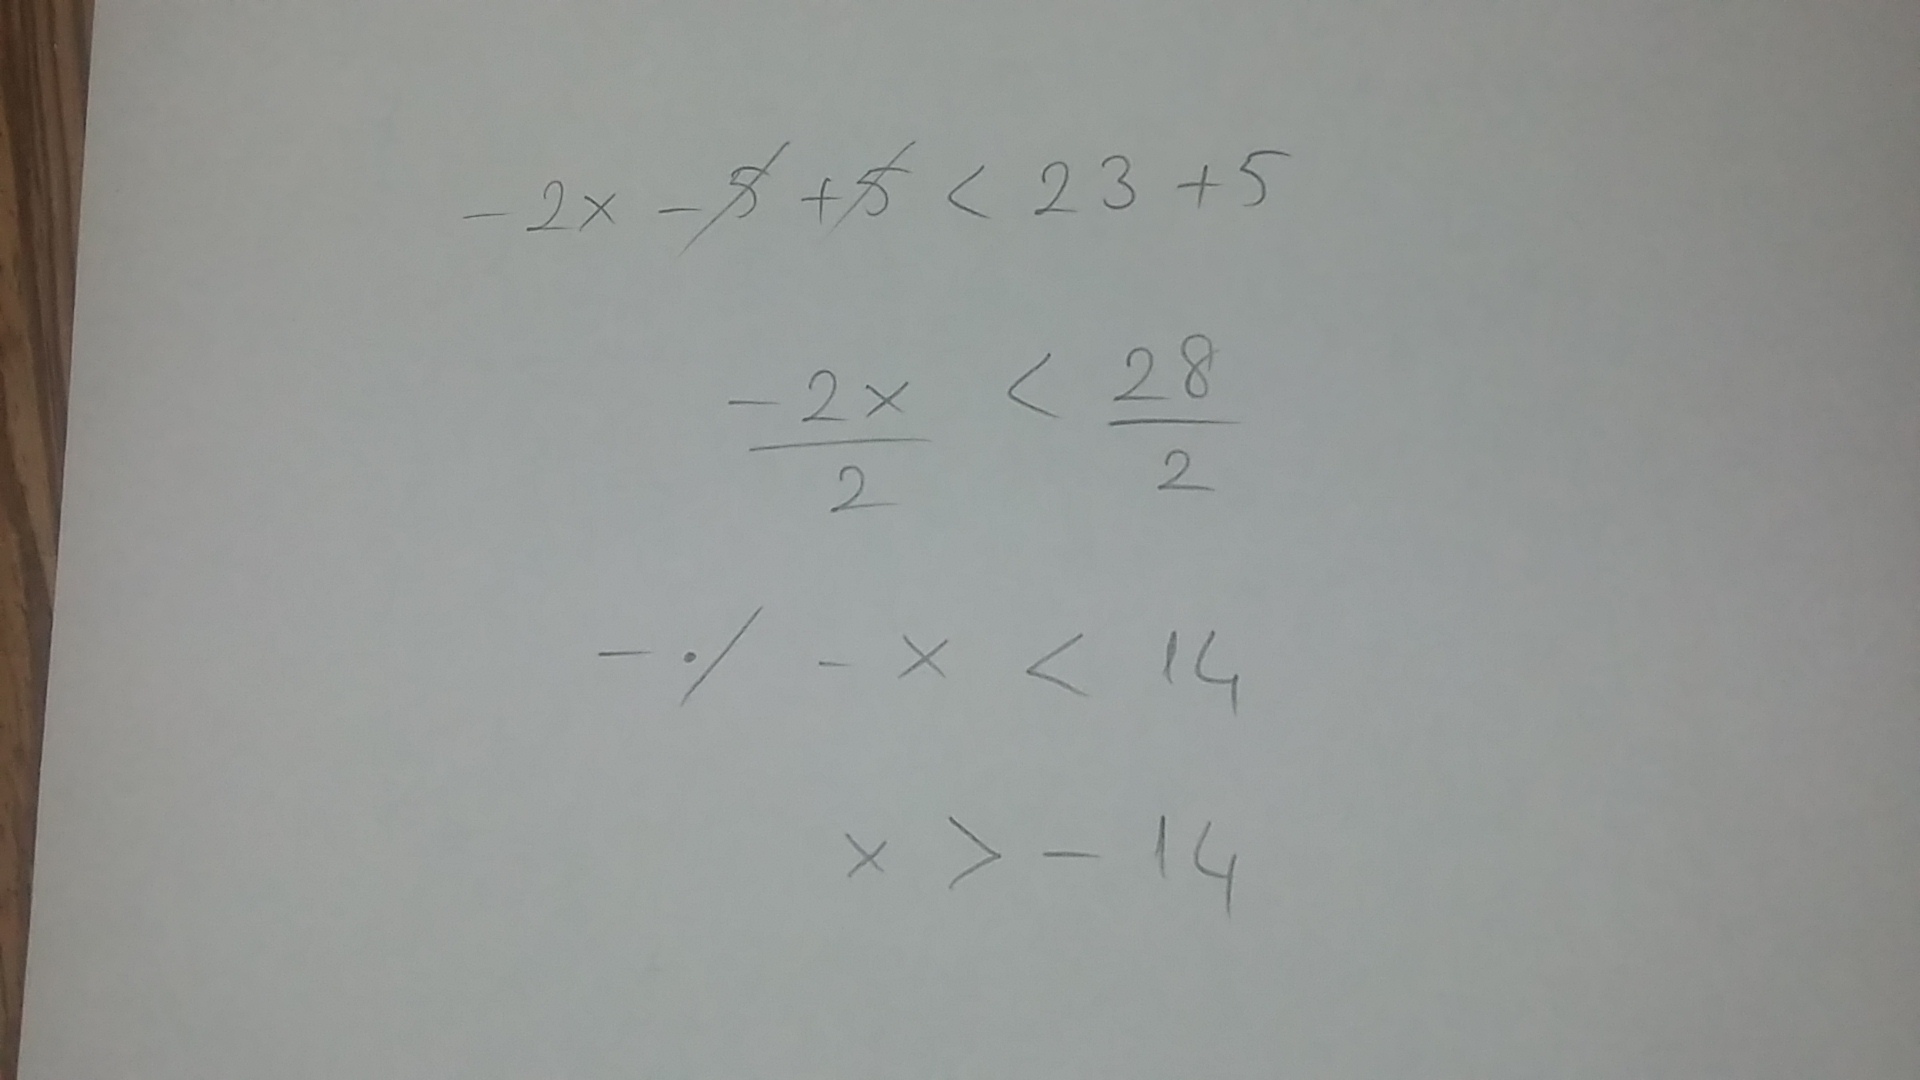 -2x -5 +5 < 23 +5
-2x/2 < 28/2
- ·/ - x < 14
x > - 14